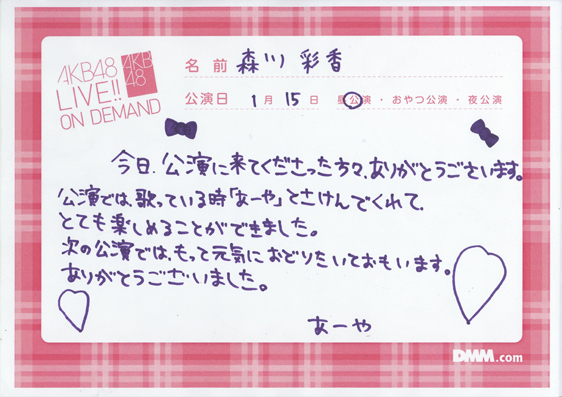 AKB48
LIVE!!
ON DEMAND
AKB
48
名前 森川 彩香
公演日 1月 15日 昼公演・おやつ公演・夜公演
今日、公演に来てくださった方々、ありがとうございます。
公演では、歌っている時「あーや」とさけんでくれて、
とても楽しめることができました。
次の公演では、もって元気におどりたいておもいます。
ありがとうございました。
あーや
DMM.com